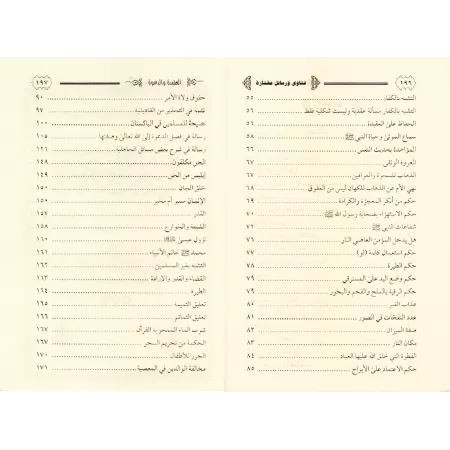 ١٩٦ فتاوى ورسائل مختارة
التشبه بالكفار ٥٥
التشبه بالكفار مسألة عقدية وليست شكلية فقط ٥٥
الحفاظ على العقيدة ٥٦
سماع الموتى وحياة النبي ﷺ ٥٨
المؤاخذة بحديث النفس ٦٦
العروة الوثقى ٦٧
الذهاب للسحرة والعرافين ٦٧
نهي الأم عن الذهاب للكهان ليس من العقوق ٦٨
حكم من أنكر المعجزة والكرامة ٦٩
حكم الاستهزاء بصحابة رسول الله ﷺ ٧٠
شفاعات النبي ﷺ ٧١
هل يدخل المؤمن العاصي النار ٧١
حكم استعمال كلمة (لو) ٧٧
حكم الطيرة ٧٨
حكم وضع اليد على المسترقي ٧٩
حكم الرقية بالملح والفحم والبخور ٧٩
عذاب القبر ٨٠
عدد النفخات في الصور ٨١
صفة الميزان ٨٢
مكان النار ٨٣
الفطرة التي خلق الله عليها العباد ٨٤
حكم الاعتماد على الأبراج ٨٥
العقيدة والدعوة ١٩٧
حقوق ولاة الأمر ٩٠
كلمة في التحذير من القاديانية ٩٧
نصيحة للمسلمين في الباكستان ١٠٠
رسالة في فضل الدعوة إلى الله تعالى ١٠٥
رسالة في شرح بعض مسائل الجاهلية ١٢١
الجن مكلفون ١٤٨
إبليس من الجن ١٤٩
خلق الجان ١٥٠
الإنسان مسير أم مخير ١٥٠
القدر ١٥٧
الشيعة والخوارج ١٥٨
نزول عيسى ١٦٠
محمد ﷺ خاتم الأنبياء ١٦١
التشبه بغير المسلمين ١٦٢
القضاء والقدر والإرادة ١٦٣
الطيرة ١٦٤
تعليق التميمة ١٦٥
تعليق التمائم ١٦٦
شرب الماء الممحو به القرآن ١٦٧
الحكمة من تحريم السحر ١٦٧
الحرز للأطفال ١٧٠
مخالفة الوالدين في المعصية ١٧١